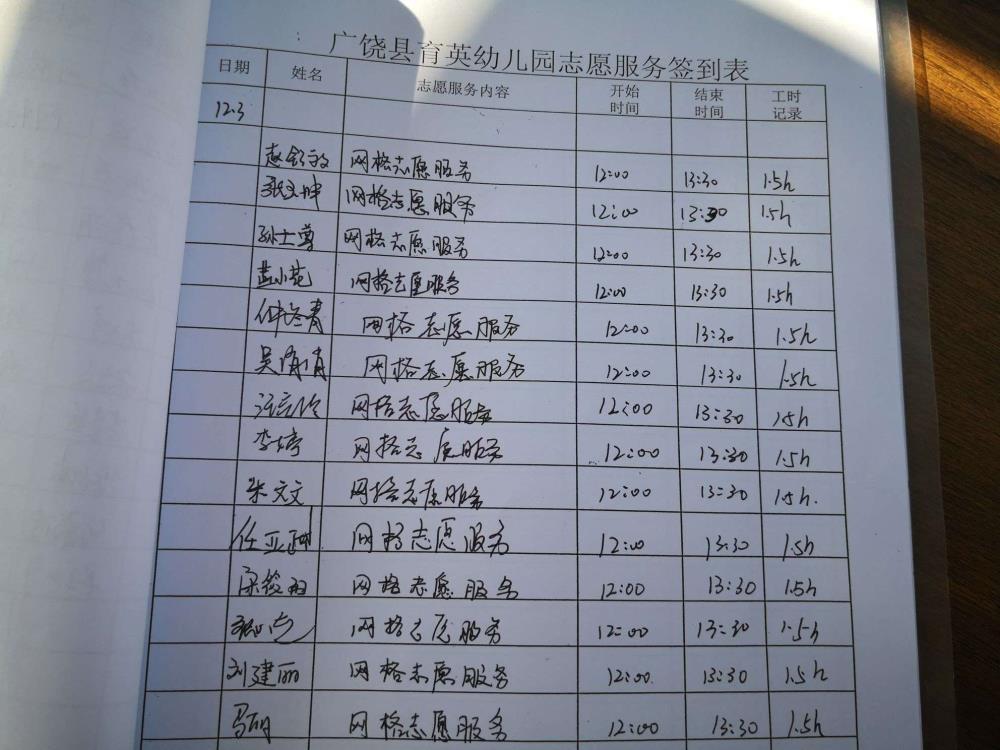 广饶县育英幼儿园志愿服务签到表
日期 姓名 志愿服务内容 开始时间 结束时间 工时记录
12.3
网格志愿服务 12:00 13:30 1.5h
张文坤 网格志愿服务 12:00 13:30 1.5h
孙士尊 网格志愿服务 12:00 13:30 1.5h
网格志愿服务 12:00 13:30 1.5h
网格志愿服务 12:00 13:30 1.5h
吴倩倩 网格志愿服务 12:00 13:30 1.5h
网格志愿服务 12:00 13:30 1.5h
李婷 网格志愿服务 12:00 13:30 1.5h
朱文文 网格志愿服务 12:00 13:30 1.5h.
任亚 网格志愿服务 12:00 13:30 1.5h
网格志愿服务 12:00 13:30 1.5h
网格志愿服务 12:00 13:30 1.5h
刘建丽 网格志愿服务 12:00 13:30 1.5h
马 网格志愿服务 12:00 13:30 1.5h